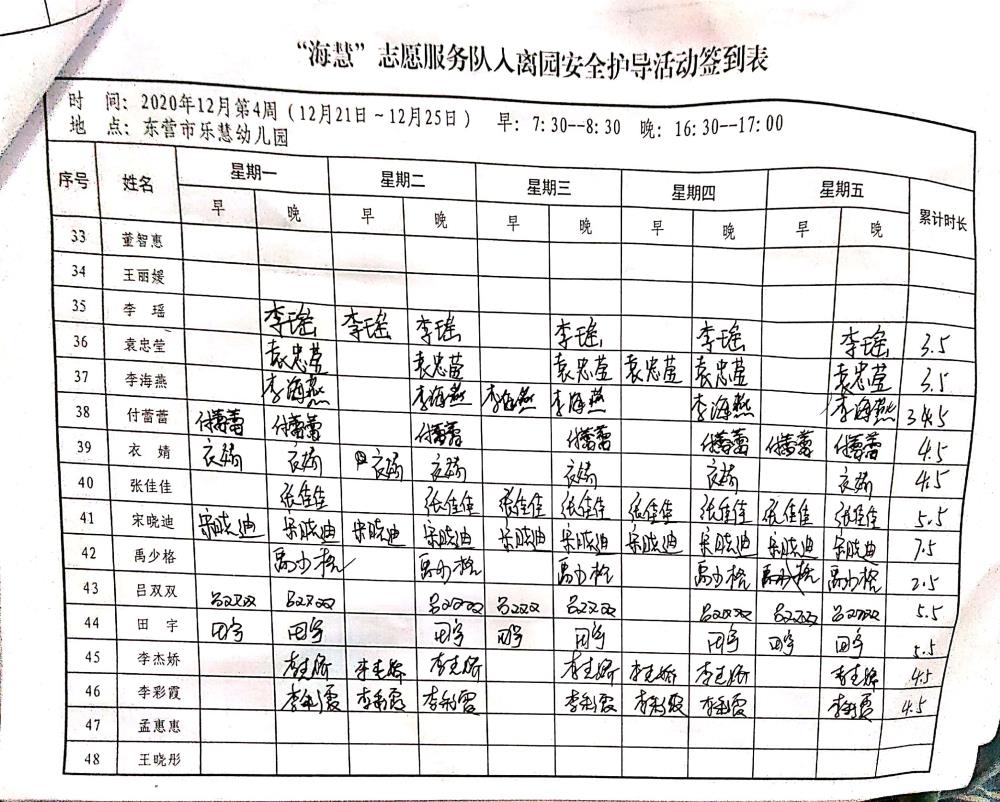 “海慧”志愿服务队入离园安全护导活动签到表
时 间：2020年12月第4周（12月21日~12月25日） 早：7:30--8:30 晚：16:30--17:00
地 点：东营市乐慧幼儿园
序号 姓名 星期一 星期二 星期三 星期四 星期五 累计时长
早 晚 早 晚 早 晚 早 晚 早 晚
33 董智惠
34 王丽媛
35 李 瑶 李瑶 李瑶 李瑶 李瑶 李瑶 李瑶 3.5
36 袁忠莹 袁忠莹 袁忠莹 袁忠莹 袁忠莹 袁忠莹 袁忠莹 3.5
37 李海燕 李海燕 李海燕 李海燕 李海燕 李海燕 李海燕 4.5
38 付蕾蕾 付蕾蕾 付蕾蕾 付蕾蕾 付蕾蕾 付蕾蕾 付蕾蕾 付蕾蕾 4.5
39 衣 婧 衣婧 衣婧 衣婧 衣婧 衣婧 衣婧 衣婧 4.5
40 张佳佳 张佳佳 张佳佳 张佳佳 张佳佳 张佳佳 张佳佳 张佳佳 张佳佳 5.5
41 宋晓迪 宋晓迪 宋晓迪 宋晓迪 宋晓迪 宋晓迪 宋晓迪 宋晓迪 宋晓迪 宋晓迪 宋晓迪 7.5
42 禹少格 禹少格 禹少格 禹少格 禹少格 禹少格 2.5
43 吕双双 吕双双 吕双双 吕双双 吕双双 吕双双 吕双双 吕双双 吕双双 5.5
44 田 宇 田宇 田宇 田宇 田宇 田宇 田宇 田宇 田宇 5.5
45 李杰娇 李杰娇 李杰娇 李杰娇 李杰娇 李杰娇 李杰娇 李杰娇 4.5
46 李彩霞 李彩霞 李彩霞 李彩霞 李彩霞 李彩霞 李彩霞 李彩霞 4.5
47 孟惠惠
48 王晓彤